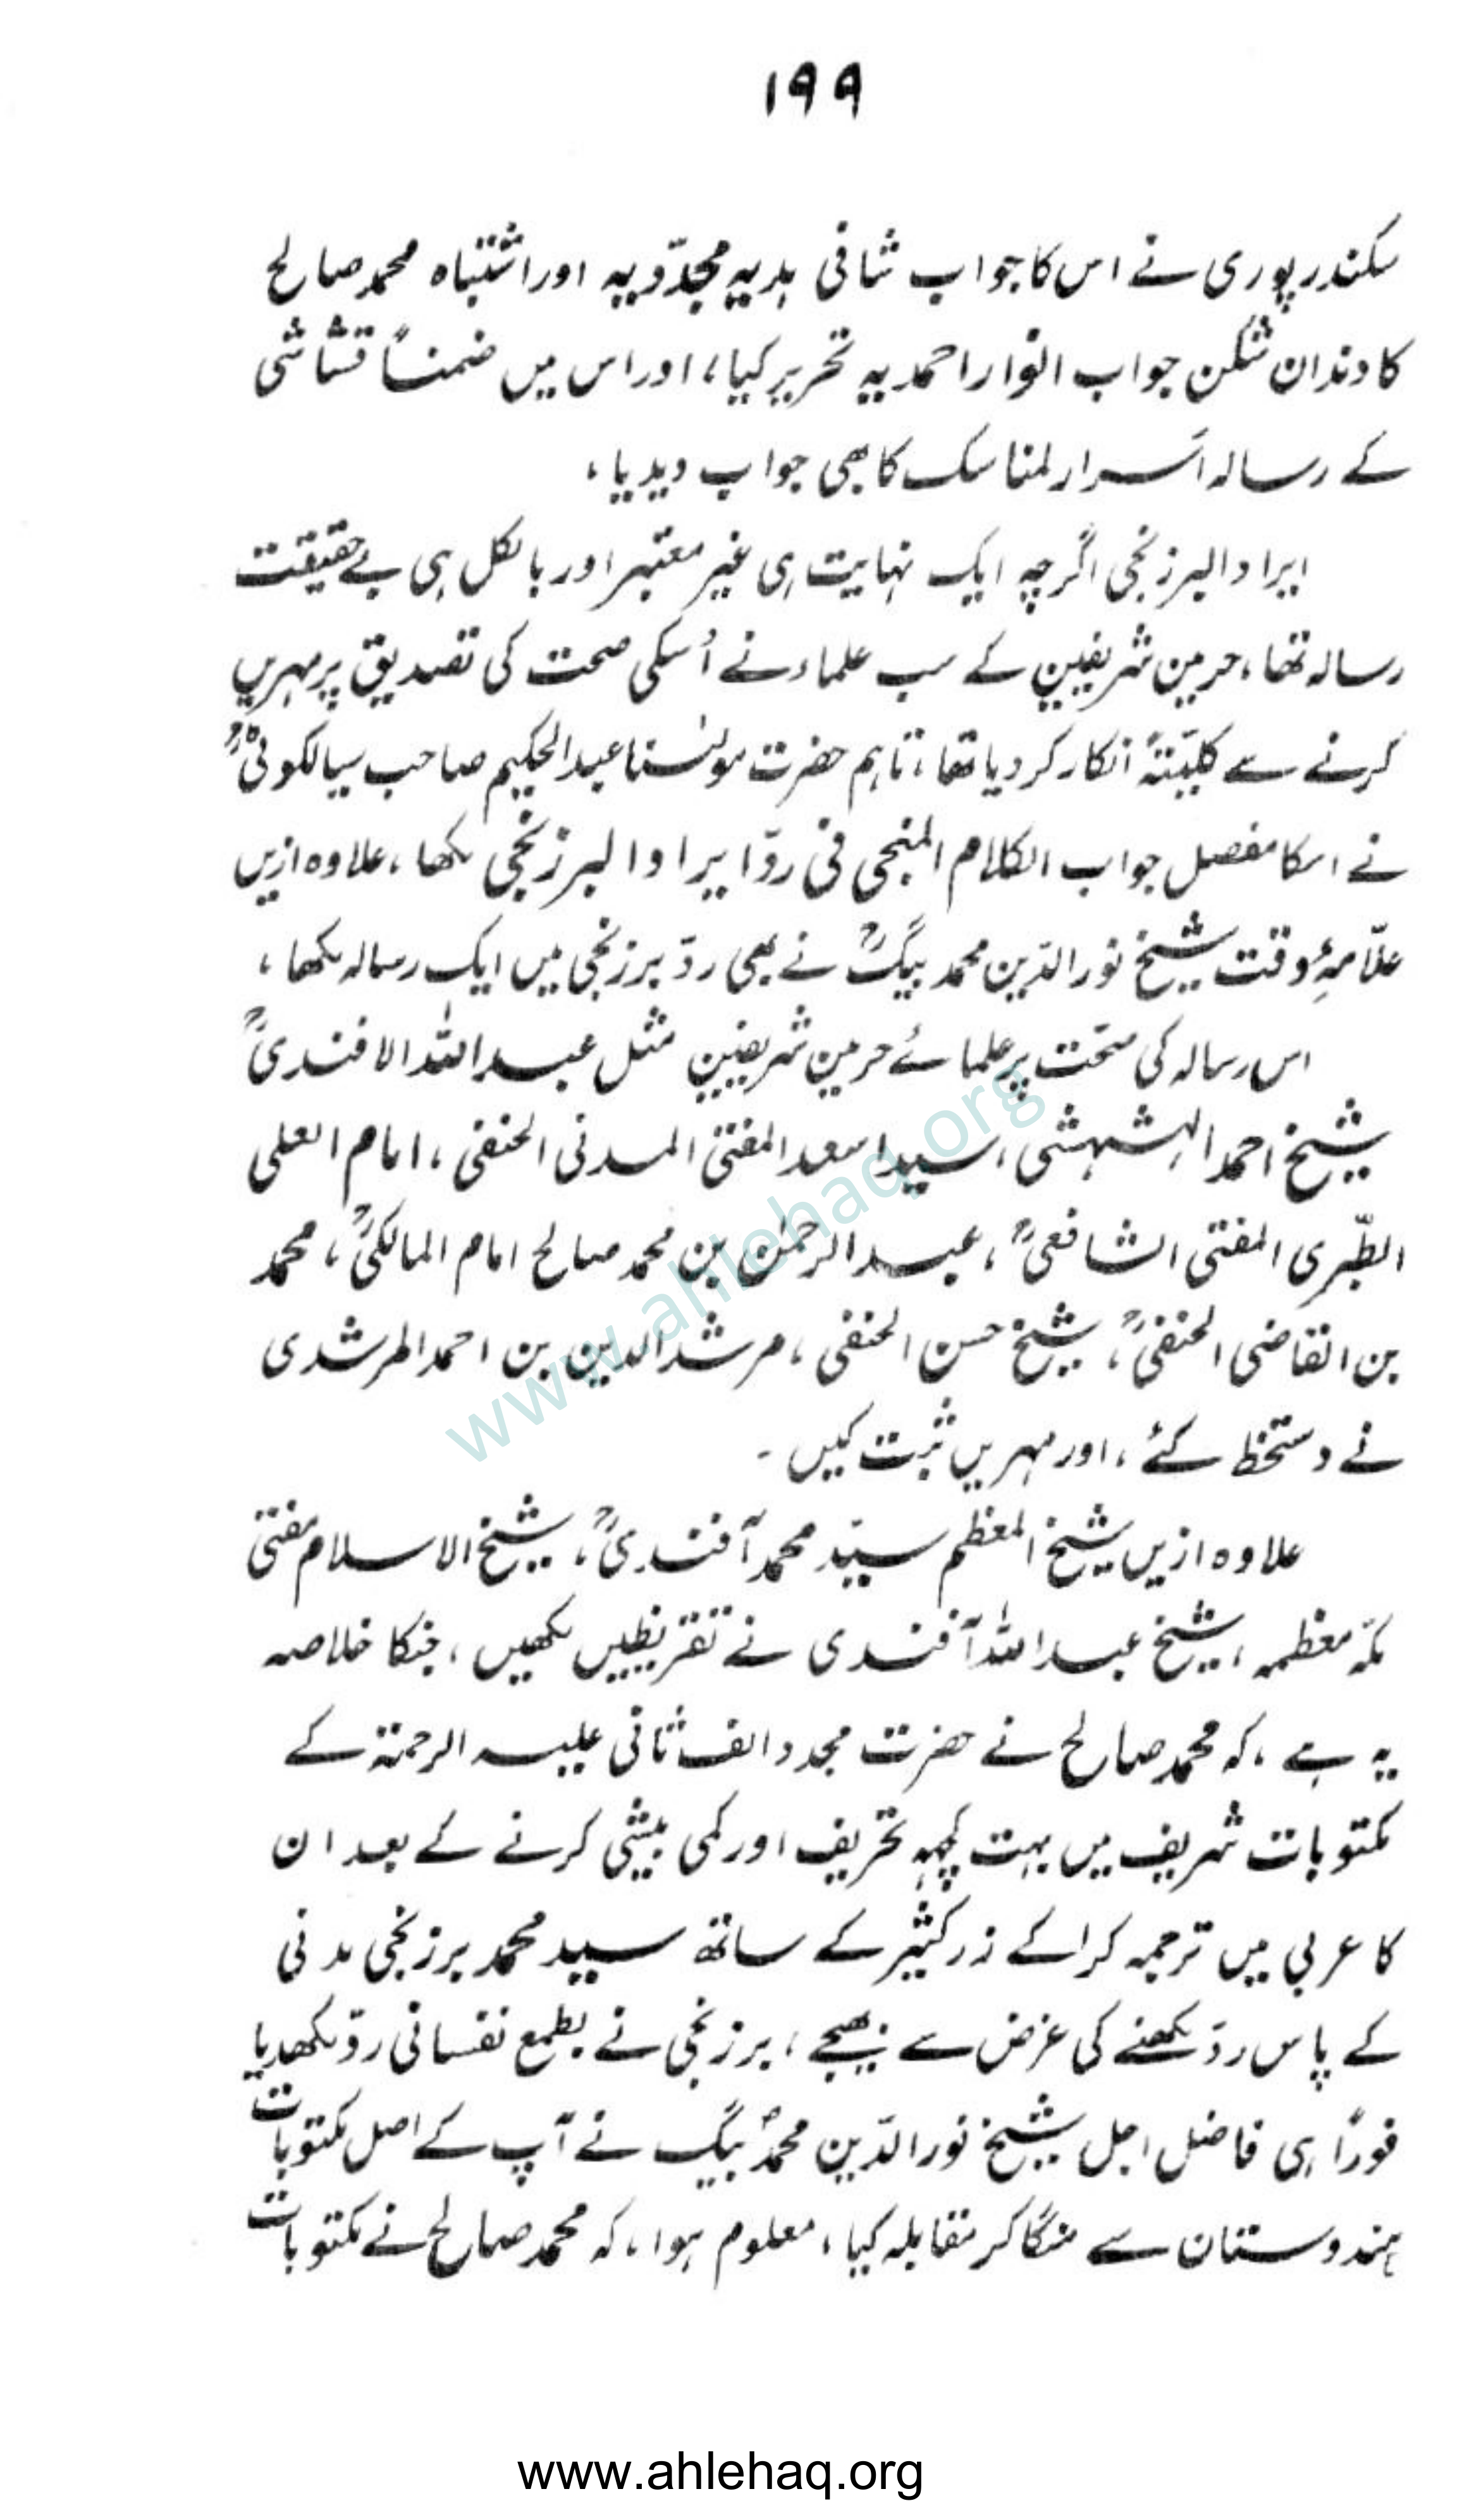 ۱۹۹
سکندرپوری نے اس کا جواب شافی ہدیہ مجدّدیہ اور اشتباہ محمد صالح
کا دندان شکن جواب انوار احمدیہ تحریر کیا، اور اس میں ضمناً قشاشی
کے رسالہ اسرار لمناسک کا بھی جواب دیدیا،
ایراد البرزنجی اگرچہ ایک نہایت ہی غیر معتبر اور بالکل ہی بے حقیقت
رسالہ تھا، حرمین شریفین کے سب علماء نے اُسکی صحت کی تصدیق پر مہریں
کرنے سے کلیّتہً انکار کر دیا تھا، تاہم حضرت مولٰنا عبدالحکیم صاحب سیالکوٹیؒ
نے اسکا مفصل جواب الکلام المنجی فی ردّ ایراد البرزنجی لکھا، علاوہ ازیں
علّامۂ وقت شیخ نور الدّین محمد بیگؒ نے بھی ردّ برزنجی میں ایک رسالہ لکھا،
اس رسالہ کی صحّت پر علمائے حرمین شریفین مثل عبداللہ الافندیؒ
شیخ احمد البشبیشی، سید اسعد المفتی المدنی الحنفی، امام العلی
الطبّری المفتی الشافعیؒ، عبدالرحمٰن بن محمد صالح امام المالکیؒ، محمد
بن القاضی الحنفیؒ، شیخ حسن الحنفی، مرشد الدین بن احمد المرشدی
نے دستخط کئے، اور مہریں ثبت کیں۔
علاوہ ازیں شیخ المعظم سیّد محمد آفندیؒ، شیخ الاسلام مفتی
مکّہ معظمہ، شیخ عبداللہ آفندی نے تقریظیں لکھیں، جنکا خلاصہ
یہ ہے، کہ محمد صالح نے حضرت مجدد الف ثانی علیہ الرحمۃ کے
مکتوبات شریف میں بہت کچھ تحریف اور کمی بیشی کرنے کے بعد ان
کا عربی میں ترجمہ کرا کے زر کثیر کے ساتھ سید محمد برزنجی مدنی
کے پاس ردّ لکھنے کی غرض سے بھیجے، برزنجی نے بطمع نفسانی ردّ لکھدیا
فوراً ہی فاضل اجل شیخ نور الدّین محمدؒ بیگ نے آپ کے اصل مکتوبات
ہندوستان سے منگا کر مقابلہ کیا، معلوم ہوا، کہ محمد صالح نے مکتوبات
www.ahlehaq.org
www.ahlehaq.org